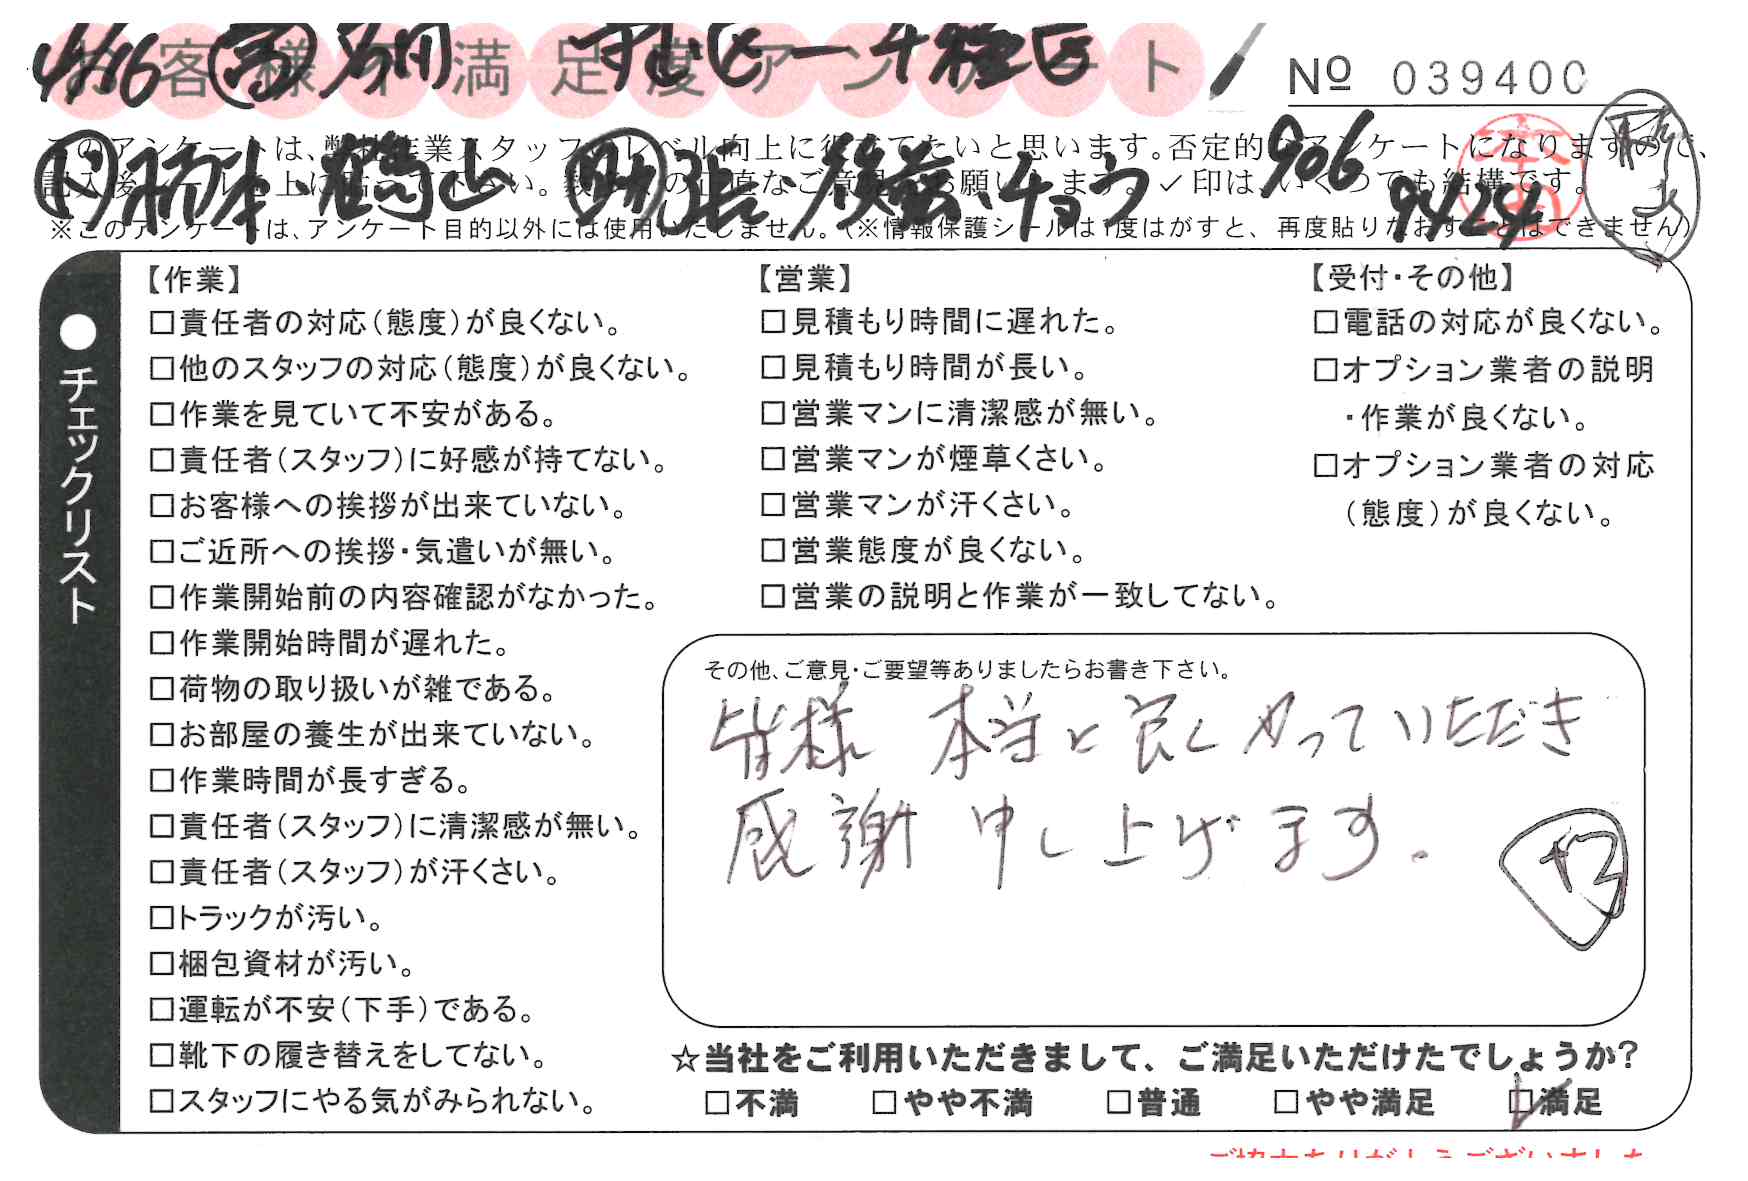 お客様不満足度アンケート
4/16
千種区
No 039400
このアンケートは、弊社作業スタッフのレベル向上に役立てたいと思います。否定的なアンケートになりますので、
906
※このアンケートは、アンケート目的以外には使用いたしません。(※情報保護シールは1度はがすと、再度貼りなおすことはできません)
●チェックリスト
【作業】
□責任者の対応(態度)が良くない。
□他のスタッフの対応(態度)が良くない。
□作業を見ていて不安がある。
□責任者(スタッフ)に好感が持てない。
□お客様への挨拶が出来ていない。
□ご近所への挨拶・気遣いが無い。
□作業開始前の内容確認がなかった。
□作業開始時間が遅れた。
□荷物の取り扱いが雑である。
□お部屋の養生が出来ていない。
□作業時間が長すぎる。
□責任者(スタッフ)に清潔感が無い。
□責任者(スタッフ)が汗くさい。
□トラックが汚い。
□梱包資材が汚い。
□運転が不安(下手)である。
□靴下の履き替えをしてない。
□スタッフにやる気がみられない。
【営業】
□見積もり時間に遅れた。
□見積もり時間が長い。
□営業マンに清潔感が無い。
□営業マンが煙草くさい。
□営業マンが汗くさい。
□営業態度が良くない。
□営業の説明と作業が一致してない。
【受付・その他】
□電話の対応が良くない。
□オプション業者の説明
・作業が良くない。
□オプション業者の対応
(態度)が良くない。
その他、ご意見・ご要望等ありましたらお書き下さい。
皆様 本当に良くやっていただき
感謝申し上げます。
☆当社をご利用いただきまして、ご満足いただけたでしょうか?
□不満 □やや不満 □普通 □やや満足 ☑満足
ご協力ありがとうございました